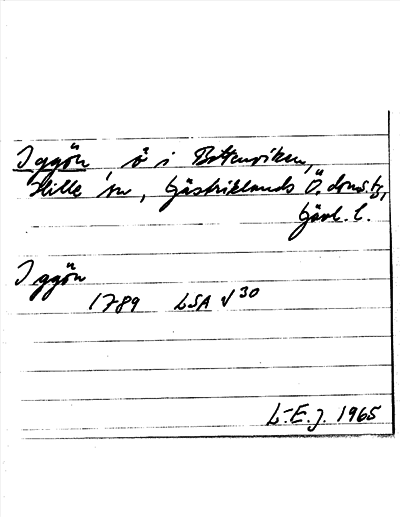 Iggön, ö i Bottenviken,
Hille sn, Gästriklands Ö. doms.g,
Gävl. l.
Iggön
1789 LSA V 30
L-E. J. 1965